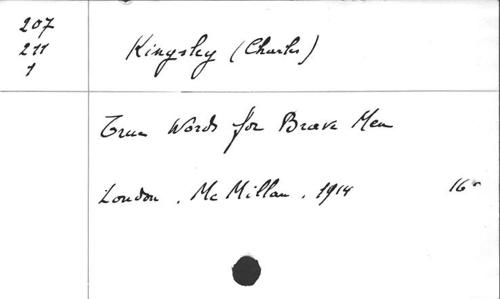 207
211
1
Kingsley (Charles)
True Words for Brave Men
London. Mc Millan. 1914 16°